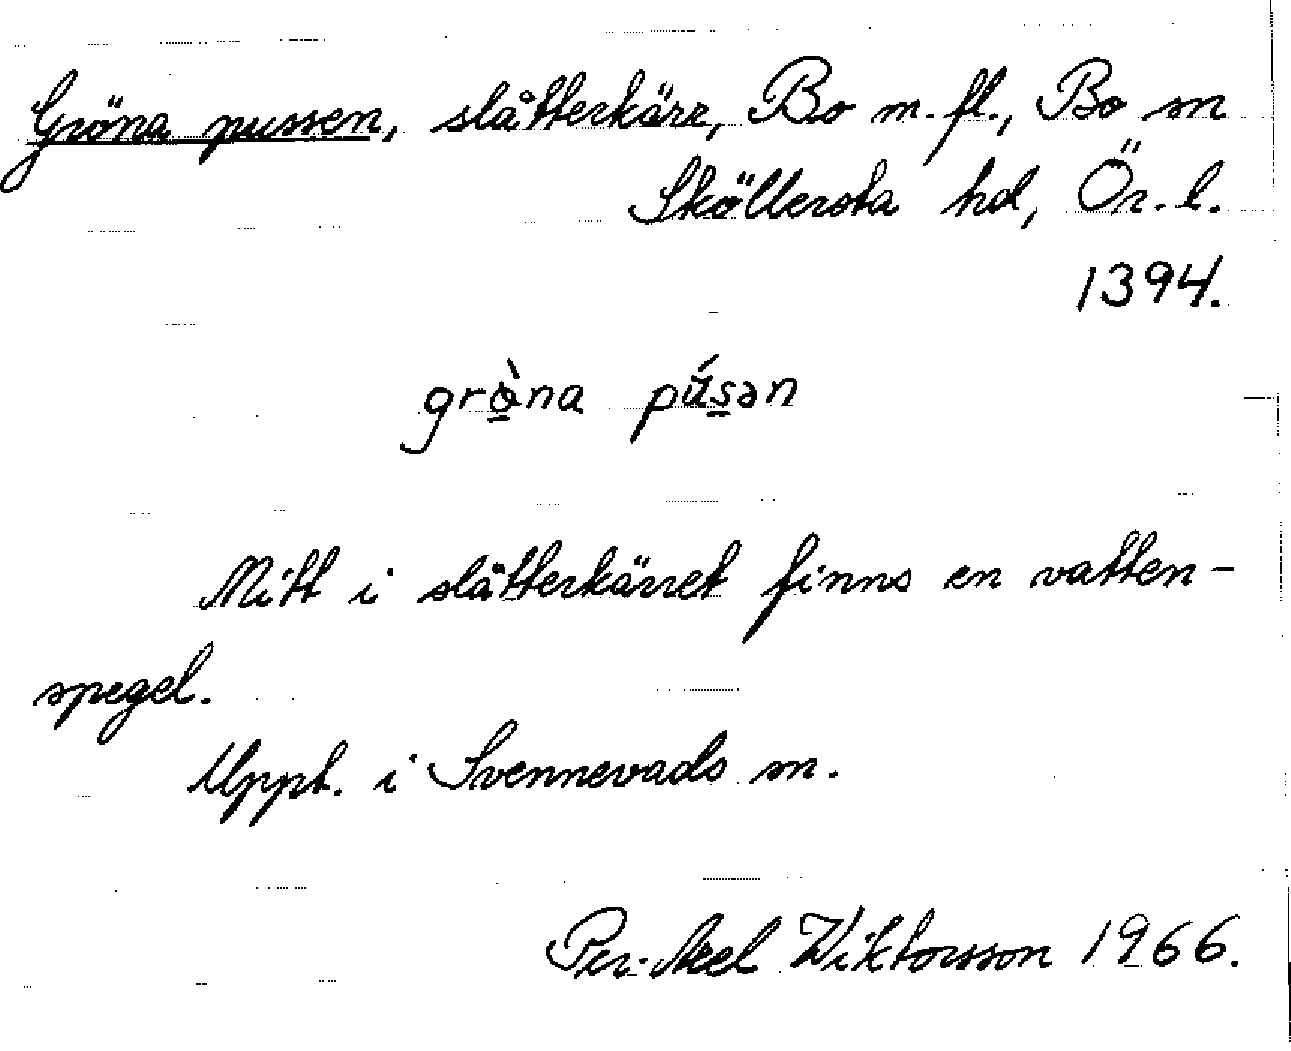 Gröna pussen, slåtterkärr, Bo m. fl., Bo sn
Sköllersta hd, Ör. l.
1394.
grö̀na púsən
Mitt i slåtterkärret finns en vatten-
spegel.
Uppt. i Svennevads sn.
Per-Axel Wiktorsson 1966.